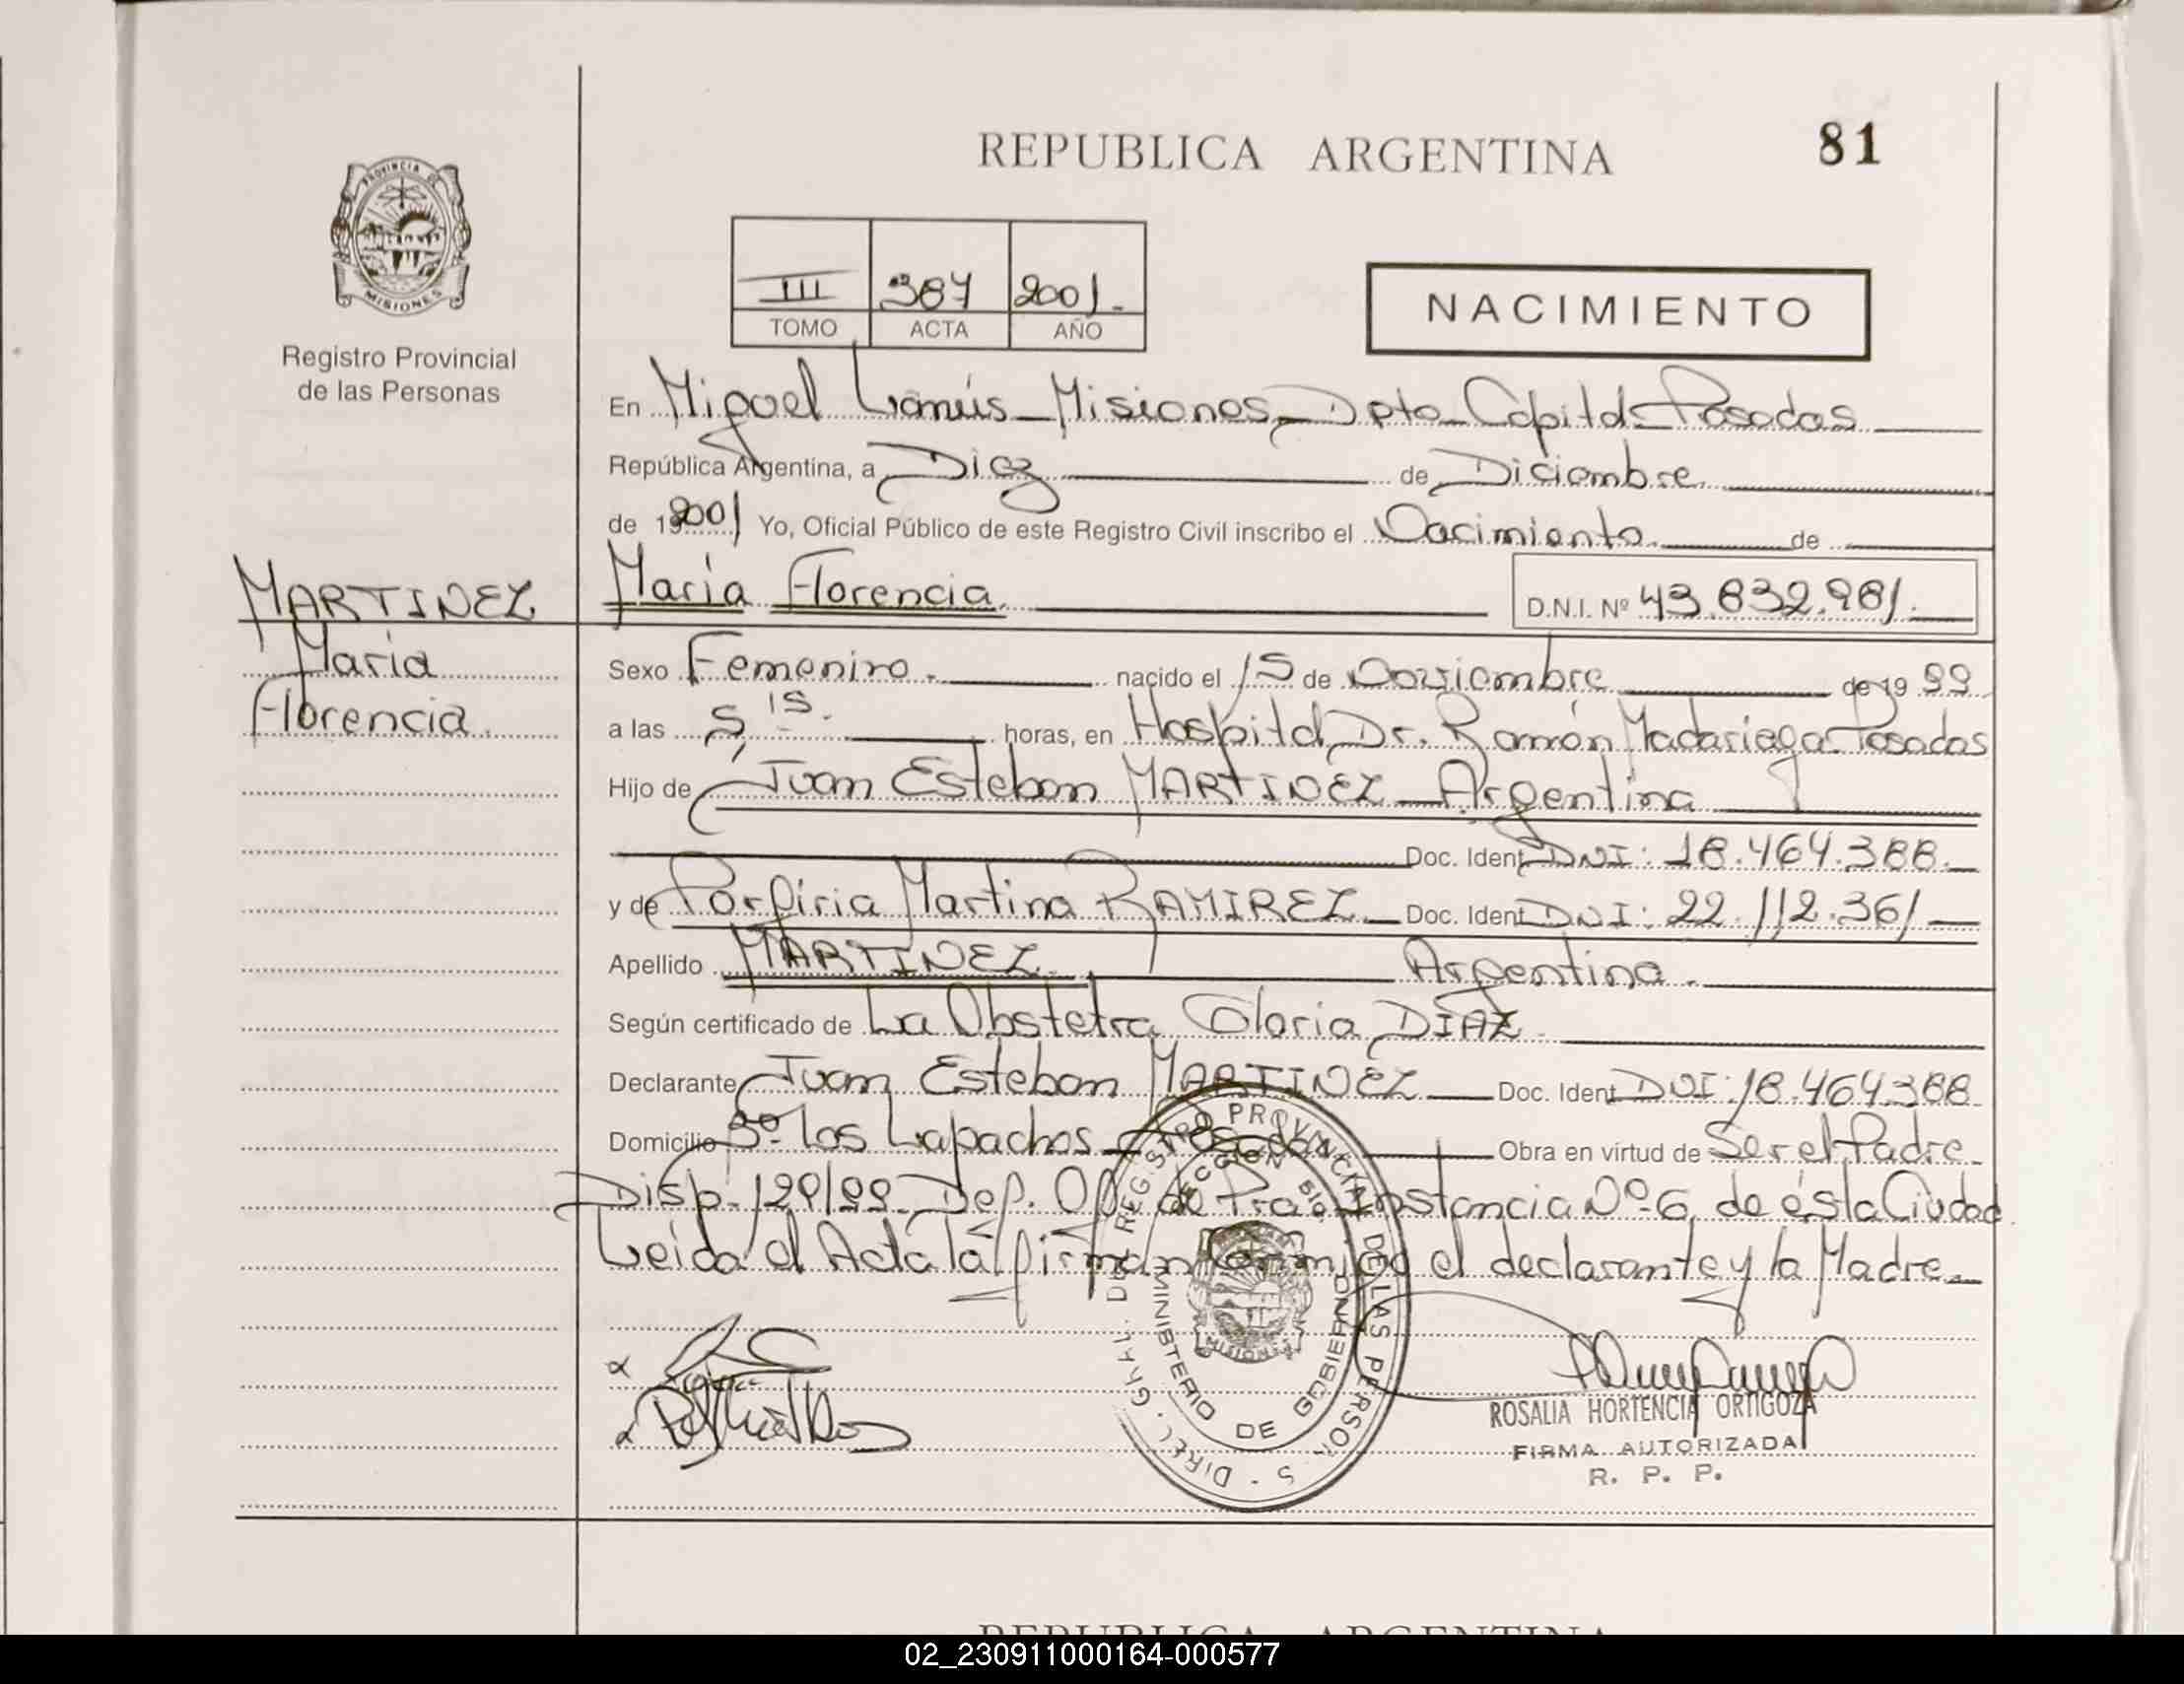 REPUBLICA ARGENTINA
81
PROVINCIA DE
MISIONES
Registro Provincial
de las Personas
III 387 2001.-
TOMO ACTA AÑO
NACIMIENTO
En Miguel Lanús - Misiones - Dpto. Capital - Posadas
República Argentina, a Diez de Diciembre
de 19 2001 Yo, Oficial Público de este Registro Civil inscribo el Nacimiento. de
MARTINEZ
María
Florencia.
María Florencia. D.N.I. Nº 43.832.981.
Sexo Femenino. nacido el 15 de Noviembre de 19 99
a las 5,15. horas, en Hospital Dr. Ramón Madariaga - Posadas
Hijo de Juan Esteban MARTINEZ - Argentina
Doc. Ident DNI: 18.464.388.
y de Porfiria Martina RAMIREZ Doc. Ident DNI: 22.112.361
Apellido MARTINEZ Argentina.
Según certificado de La Obstetra Gloria DIAZ
Declarante Juan Esteban MARTINEZ Doc. Ident DNI: 18.464.388
Domicilio Bº Los Lapachos - Posadas Obra en virtud de Ser el Padre
Disp. 129/99 Def. Of. de Pra. Instancia Nº 6 de ésta Ciudad
Leida el Acta la firman Conmigo el declarante y la Madre
REGISTRO PROVINCIAL DE LAS PERSONAS
MINISTERIO DE GOBIERNO
MISIONES
ROSALIA HORTENCIA ORTIGOZA
FIRMA AUTORIZADA
R. P. P.
REPUBLICA ARGENTINA
02_230911000164-000577